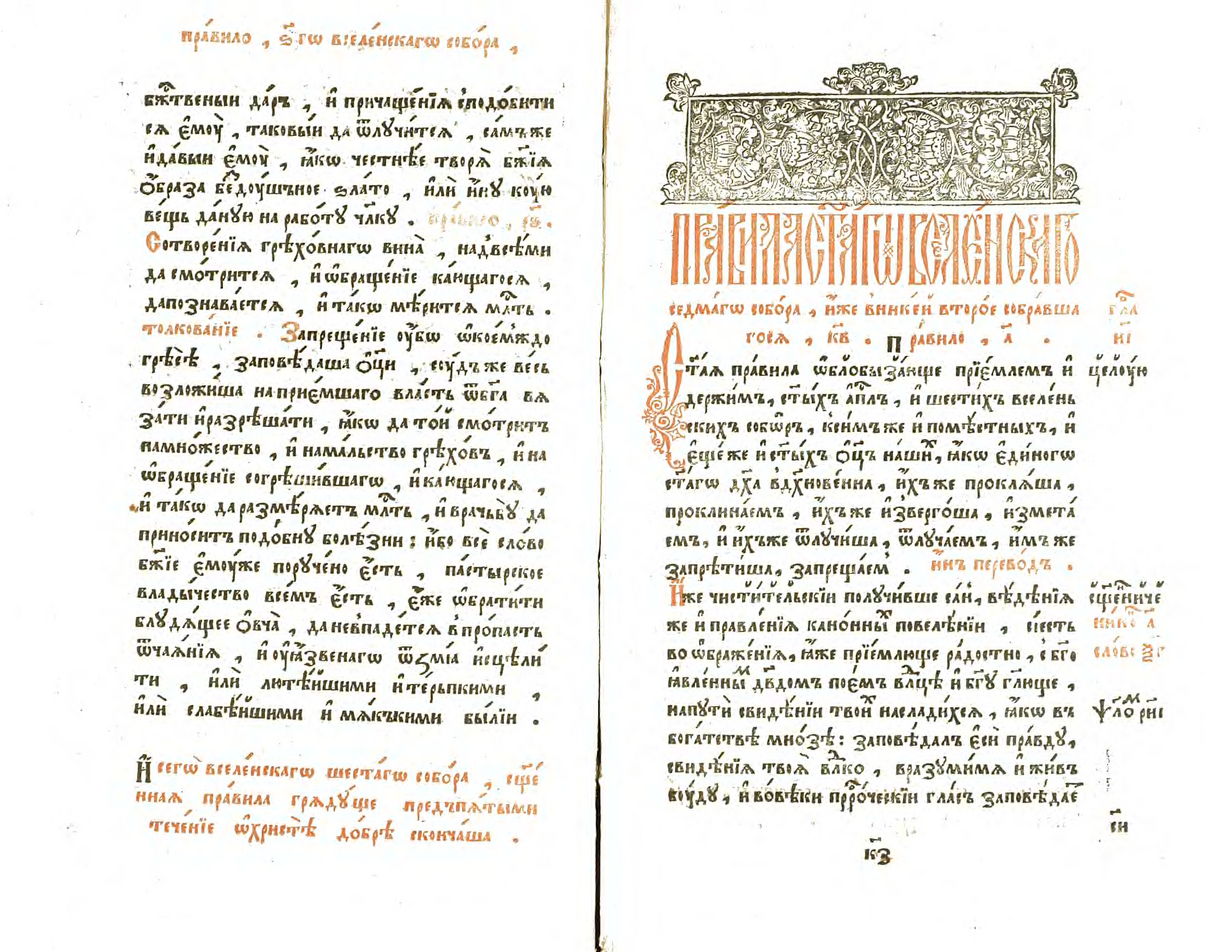 пра́вило , ѕ҃гѡ вселе́нскагѡ собо́ра ,
бж҃твеныи да́ръ , и҆ причаще́нїѧ сподо́бити
сѧ є҆моу̀ , таковы́и да ѿлучи́тсѧ , са́мъже
и҆да́выи є҆моу̀ , ꙗ҆́кѡ честнѣ́е творѧ̀ бж҃їѧ
ѻ҆́браза бездоу́шъное ѕла́то , и҆лѝ и҆́ну ко́ую
ве́щь да́ную на рабо́ту чл҃ку . пра́вило , рв҃ .
Сотворе́нїѧ грѣхо́внагѡ вина̀ , надвсѣ́ми
да смо́тритсѧ , и҆ѡбраще́нїе ка́ющагосѧ ,
дапознава́етсѧ , и҆та́кѡ мѣ́ритсѧ мл҃ть .
толкова́нїе . Запреще́нїе оу҆́бѡ ѡ҆кое́мждо
грѣсѣ̀ , заповѣ́даша ѻ҆ц҃ы , соу́дъ же ве́сь
возложи́ша на прие́мшаго вла́сть ѿбг҃а вѧ
за́ти и҆разрѣша́ти , ꙗ҆́кѡ да то́й смо́тритъ
намно́жество , и҆нама́льство грѣхо́въ , и҆на
ѡ҆браще́нїе согрѣши́вшагѡ , и҆ка́ющагосѧ ,
и҆ та́кѡ да размѣрѧ́етъ мл҃ть , и҆ врачьвꙋ̀ да
прино́ситъ подо́бну болѣ́зни : и҆́бо всѐ сло́во
бж҃їе є҆моу́же пору́чено є҆́сть , па́стырское
влады́чество всѣ́мъ є҆́сть , є҆́же ѡ҆брати́ти
блудѧ́щее ѻ҆вча̀ , да невпаде́тсѧ в про́пасть
ѿча́ѧнїѧ , и҆ оу҆ꙗ҆́звенагѡ ѿ ѕмі́а и҆сцѣли́
ти , и҆лѝ лютѣ́ишими и҆ те́рьпкими ,
и҆лѝ слабѣ́йшими и҆ мѧ́къкими бы́лїи .
И҆ сегѡ̀ вселе́нскагѡ шеста́гѡ собо́ра , сщ҃е́
ннаѧ пра́вила грѧду́ще предъпѧ́тыми
тече́нїе ѡ҆христѣ̀ до́брѣ сконча́ша .
ПРАВИЛА СТ҃АГѠ ВСЕЛЕНСКАГѠ
седма́гѡ собо́ра , и҆́же вники́и второ́е собра́вша
гл҃а
госѧ , к҃в . Пра́вило , а҃ .
н҃і
Ст҃а́ѧ пра́вила ѡ҆блобыза́юще прїе́млемъ и҆
цѣлу́ю
держи́мъ, ст҃ы́хъ ап҃лъ , и҆ шести́хъ вселе́нь
скихъ собѡ́ръ, кси́мъже и҆ помѣ́стныхъ, и҆
є҆ще́ же и҆ ст҃ы́хъ ѻ҆ц҃ъ на́ши, ꙗ҆́кѡ є҆ди́ногѡ
ст҃а́гѡ дх҃а вдх҃нове́нна , и҆́хъже проклѧ́ша ,
проклина́емъ , и҆́хъже и҆зверго́ша , и҆змета́
емъ, и҆ и҆́хъже ѿлучи́ша , ѿлуча́емъ , и҆́мъже
запрѣти́ша, запреща́ем . и҆́нъ перево́дъ .
И҆́же чисти́тельскїи получи́вше са́н, вѣ́дѣнїѧ
сщ҃е́нниче
же и҆ правле́нїѧ кано́нны повелѣ́нїи , сі́есть
во ѡ҆браже́нїѧ, ꙗ҆́же прїе́млюще ра́достно , с бг҃о
ꙗ҆вле́нны дв҃домъ пое́мъ влд҃цѣ и҆ бг҃у гл҃юще ,
напутѝ свидѣ́нїи твои́ наслади́хсѧ , ꙗ҆́кѡ въ
бога́тствѣ мно́зѣ : заповѣ́далъ є҆сѝ пра́вду,
свидѣ́нїѧ твоѧ̀ вл҃ко , вразуми́мѧ и҆ жи́въ
боу́ду , и҆ во́вѣки прⷪ҇ро́ческїи гла́съ заповѣ́дае
си
к҃з